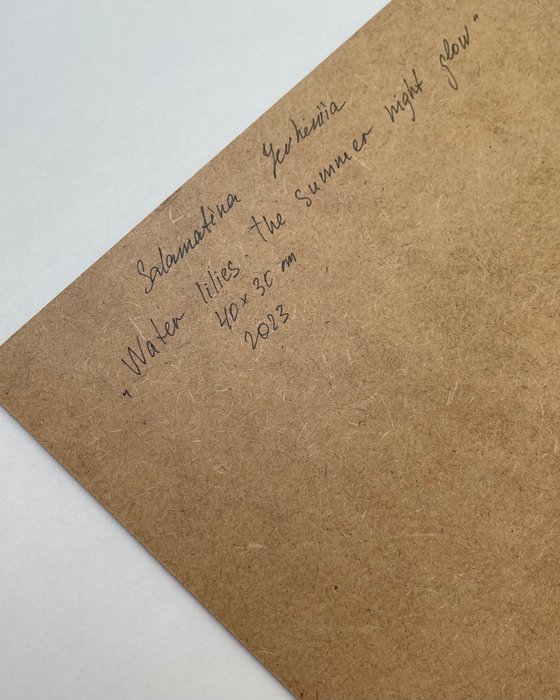 Salamatina Yevheniia
„Water lilies. the summer night glow"
40x30 cm
2023